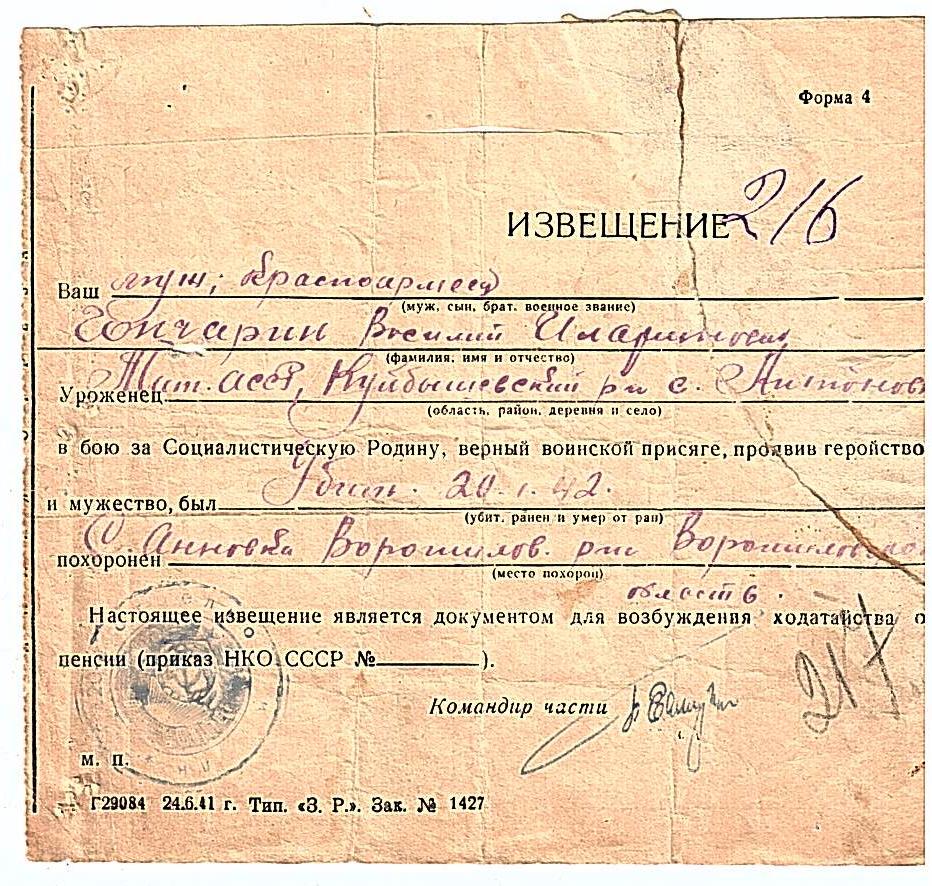 Форма 4
ИЗВЕЩЕНИЕ 216
Ваш муж; Красноармеец
(муж, сын, брат. военное звание)
Гончарин Василий Иларионович
(фамилия, имя и отчество)
Уроженец Мит. асср, Куйбышевский р-н с. Антонов
(область, район, деревня и село)
в бою за Социалистическую Родину, верный воинской присяге, проявив геройство
и мужество, был Убит. 20.1.42.
(убит, ранен и умер от ран)
похоронен С. Анновка Ворошилов. р-н Ворошиловской
(место похорон)
область.
Настоящее извещение является документом для возбуждения ходатайства о
пенсии (приказ НКО СССР № ).
Командир части
217
м. п.
Г29084 24.6.41 г. Тип. «З. Р.». Зак. № 1427